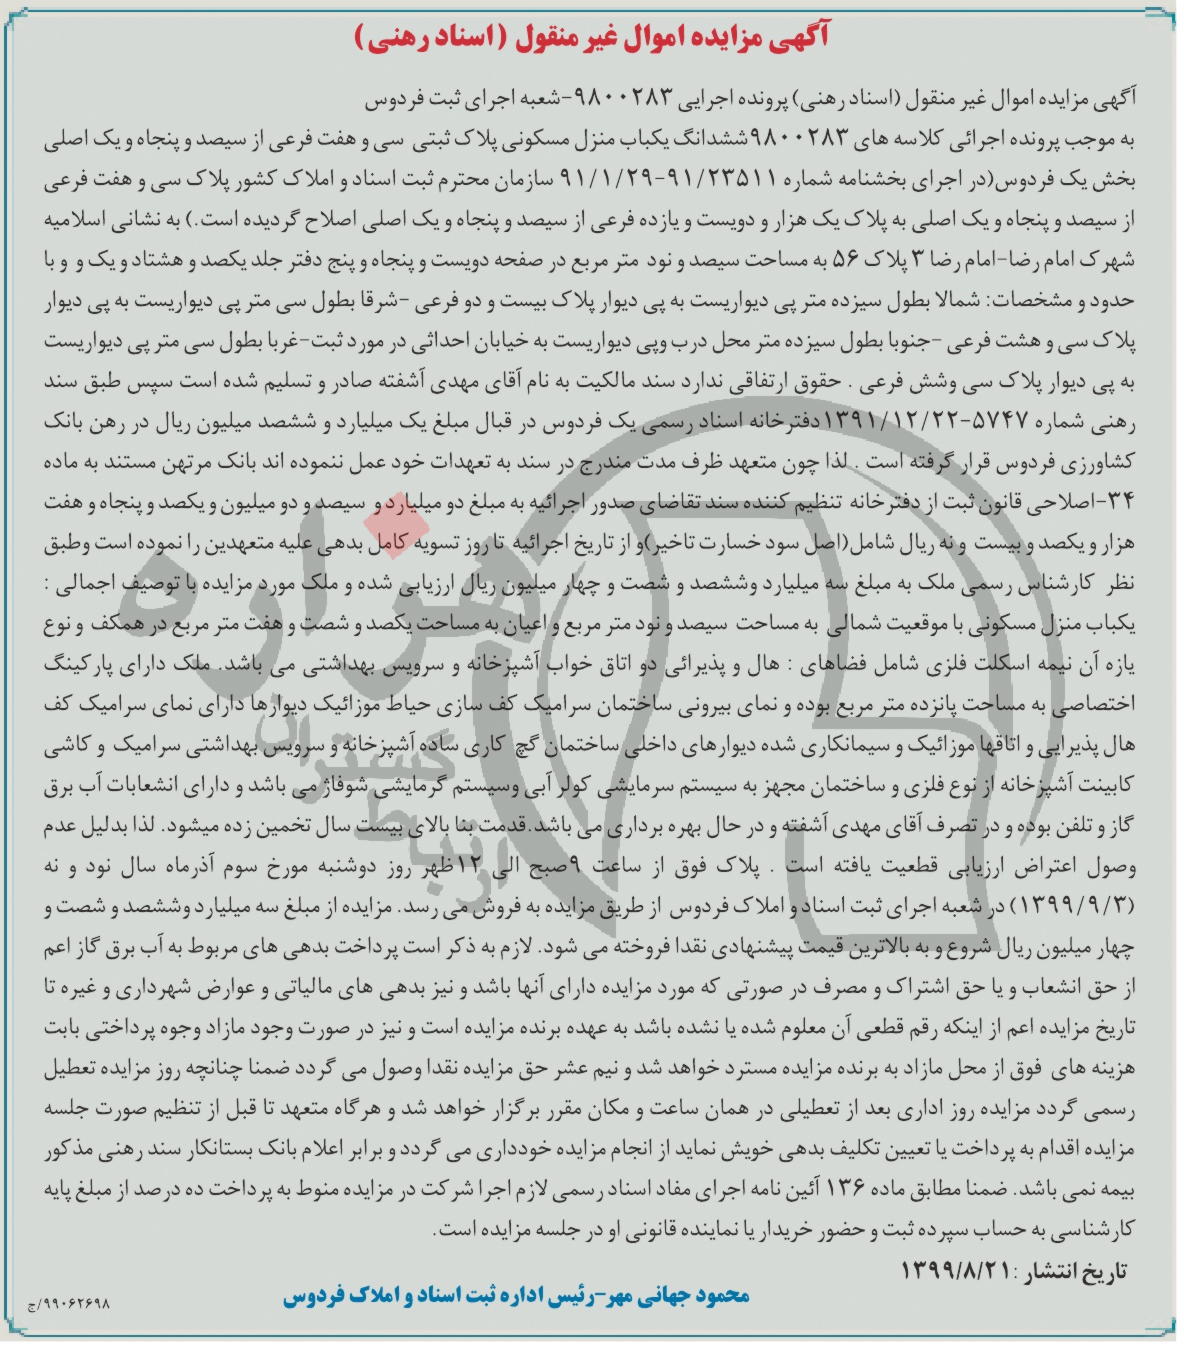 آگهی مزایده اموال غیر منقول (اسناد رهنی)
آگهی مزایده اموال غیر منقول (اسناد رهنی) پرونده اجرایی ۹۸۰۰۲۸۳-شعبه اجرای ثبت فردوس
به موجب پرونده اجرائی کلاسه های ۹۸۰۰۲۸۳ششدانگ یکباب منزل مسکونی پلاک ثبتی سی و هفت فرعی از سیصد و پنجاه و یک اصلی
بخش یک فردوس(در اجرای بخشنامه شماره ۹۱/۲۳۵۱۱-۹۱/۱/۲۹ سازمان محترم ثبت اسناد و املاک کشور پلاک سی و هفت فرعی
از سیصد و پنجاه و یک اصلی به پلاک یک هزار و دویست و یازده فرعی از سیصد و پنجاه و یک اصلی اصلاح گردیده است.) به نشانی اسلامیه
شهرک امام رضا-امام رضا ۳ پلاک ۵۶ به مساحت سیصد و نود متر مربع در صفحه دویست و پنجاه و پنج دفتر جلد یکصد و هشتاد و یک و و با
حدود و مشخصات: شمالا بطول سیزده متر پی دیواریست به پی دیوار پلاک بیست و دو فرعی -شرقا بطول سی متر پی دیواریست به پی دیوار
پلاک سی و هشت فرعی -جنوبا بطول سیزده متر محل درب وپی دیواریست به خیابان احداثی در مورد ثبت-غربا بطول سی متر پی دیواریست
به پی دیوار پلاک سی وشش فرعی . حقوق ارتفاقی ندارد سند مالکیت به نام آقای مهدی آشفته صادر و تسلیم شده است سپس طبق سند
رهنی شماره ۵۷۴۷-۱۳۹۱/۱۲/۲۲دفترخانه اسناد رسمی یک فردوس در قبال مبلغ یک میلیارد و ششصد میلیون ریال در رهن بانک
کشاورزی فردوس قرار گرفته است . لذا چون متعهد ظرف مدت مندرج در سند به تعهدات خود عمل ننموده اند بانک مرتهن مستند به ماده
۳۴-اصلاحی قانون ثبت از دفترخانه تنظیم کننده سند تقاضای صدور اجرائیه به مبلغ دو میلیارد و سیصد و دو میلیون و یکصد و پنجاه و هفت
هزار و یکصد و بیست و نه ریال شامل(اصل سود خسارت تاخیر)و از تاریخ اجرائیه تا روز تسویه کامل بدهی علیه متعهدین را نموده است وطبق
نظر کارشناس رسمی ملک به مبلغ سه میلیارد وششصد و شصت و چهار میلیون ریال ارزیابی شده و ملک مورد مزایده با توصیف اجمالی :
یکباب منزل مسکونی با موقعیت شمالی به مساحت سیصد و نود متر مربع و اعیان به مساحت یکصد و شصت و هفت متر مربع در همکف و نوع
یازه آن نیمه اسکلت فلزی شامل فضاهای : هال و پذیرائی دو اتاق خواب آشپزخانه و سرویس بهداشتی می باشد. ملک دارای پارکینگ
اختصاصی به مساحت پانزده متر مربع بوده و نمای بیرونی ساختمان سرامیک کف سازی حیاط موزائیک دیوارها دارای نمای سرامیک کف
هال پذیرایی و اتاقها موزائیک و سیمانکاری شده دیوارهای داخلی ساختمان گچ کاری ساده آشپزخانه و سرویس بهداشتی سرامیک و کاشی
کابینت آشپزخانه از نوع فلزی و ساختمان مجهز به سیستم سرمایشی کولر آبی وسیستم گرمایشی شوفاژ می باشد و دارای انشعابات آب برق
گاز و تلفن بوده و در تصرف آقای مهدی آشفته و در حال بهره برداری می باشد.قدمت بنا بالای بیست سال تخمین زده میشود. لذا بدلیل عدم
وصول اعتراض ارزیابی قطعیت یافته است . پلاک فوق از ساعت ۹صبح الی ۱۲ظهر روز دوشنبه مورخ سوم آذرماه سال نود و نه
(۱۳۹۹/۹/۳) در شعبه اجرای ثبت اسناد و املاک فردوس از طریق مزایده به فروش می رسد. مزایده از مبلغ سه میلیارد وششصد و شصت و
چهار میلیون ریال شروع و به بالاترین قیمت پیشنهادی نقدا فروخته می شود. لازم به ذکر است پرداخت بدهی های مربوط به آب برق گاز اعم
از حق انشعاب و یا حق اشتراک و مصرف در صورتی که مورد مزایده دارای آنها باشد و نیز بدهی های مالیاتی و عوارض شهرداری و غیره تا
تاریخ مزایده اعم از اینکه رقم قطعی آن معلوم شده یا نشده باشد به عهده برنده مزایده است و نیز در صورت وجود مازاد وجوه پرداختی بابت
هزینه های فوق از محل مازاد به برنده مزایده مسترد خواهد شد و نیم عشر حق مزایده نقدا وصول می گردد ضمنا چنانچه روز مزایده تعطیل
رسمی گردد مزایده روز اداری بعد از تعطیلی در همان ساعت و مکان مقرر برگزار خواهد شد و هرگاه متعهد تا قبل از تنظیم صورت جلسه
مزایده اقدام به پرداخت یا تعیین تکلیف بدهی خویش نماید از انجام مزایده خودداری می گردد و برابر اعلام بانک بستانکار سند رهنی مذکور
بیمه نمی باشد. ضمنا مطابق ماده ۱۳۶ آئین نامه اجرای مفاد اسناد رسمی لازم اجرا شرکت در مزایده منوط به پرداخت ده درصد از مبلغ پایه
کارشناسی به حساب سپرده ثبت و حضور خریدار یا نماینده قانونی او در جلسه مزایده است.
تاریخ انتشار :۱۳۹۹/۸/۲۱
محمود جهانی مهر-رئیس اداره ثبت اسناد و املاک فردوس
۹۹۰۶۲۶۹۸/ج
هزاره
ارتباط گستران